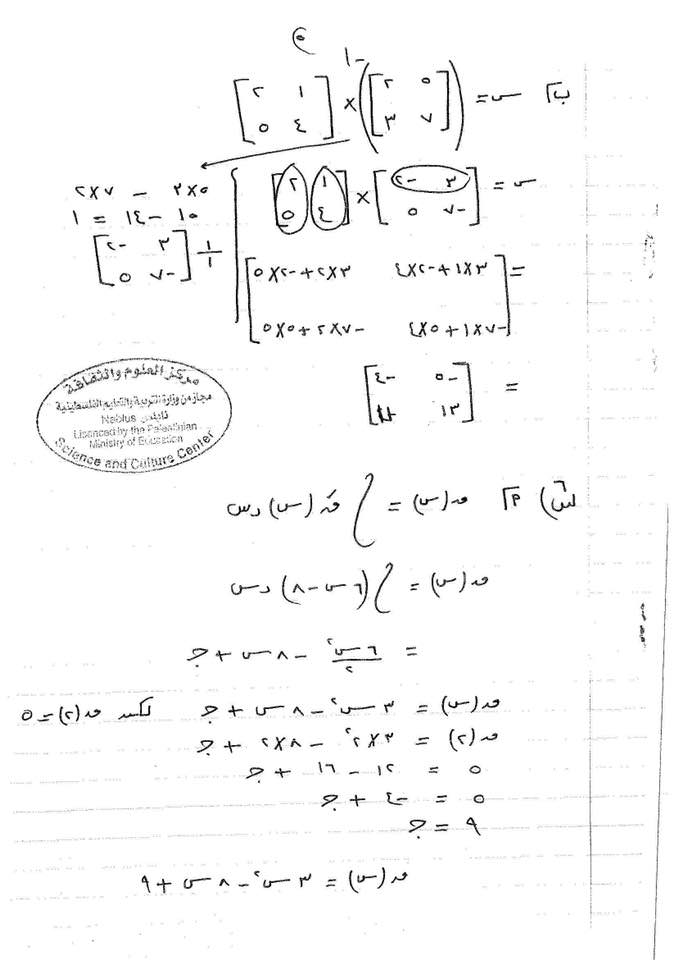 ب س = ([٥ ٢
٧ ٣])^-١ × [١ ٢
٤ ٥]
س = [٣ -٢
-٧ ٥] × [١ ٢
٤ ٥]
٣×٥ - ٧×٢
١٥ - ١٤ = ١
١/١ [٣ -٢
-٧ ٥]
= [٣×١+-٢×٤ ٣×٢+-٢×٥
-٧×١+٥×٤ -٧×٢+٥×٥]
= [-٥ -٤
١٣ ١١]
مركز العلوم والثقافة
مجاز من وزارة التربية والتعليم الفلسطينية
نابلس Nablus
Lisenced by the Palestinian
Ministry of Education
Science and Culture Center
س٦) أ ق(س) = ∫ قَ(س) دس
ق(س) = ∫ (٦س - ٨) دس
= ٦س²/٢ - ٨س + جـ
ق(س) = ٣س² - ٨س + جـ لكن ق(٢) = ٥
ق(٢) = ٣×٢² - ٨×٢ + جـ
٥ = ١٢ - ١٦ + جـ
٥ = -٤ + جـ
٩ = جـ
ق(س) = ٣س² - ٨س + ٩